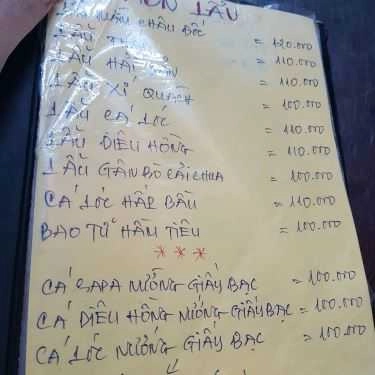 MÓN LẨU
CHÂU ĐỐC = 120.000
LẨU = 110.000
LẨU HẢI SẢN = 110.000
LẨU XÍ QUÁCH = 100.000
LẨU CÁ LÓC = 110.000
LẨU DIÊU HỒNG = 110.000
LẨU GÂN BÒ CẢI CHUA = 100.000
CÁ LÓC HẤP BẦU = 110.000
BAO TỬ HẦM TIÊU = 100.000
***
CÁ SAPA NƯỚNG GIẤY BẠC = 100.000
CÁ DIÊU HỒNG NƯỚNG GIẤY BẠC = 100.000
CÁ LÓC NƯỚNG GIẤY BẠC = 100.000